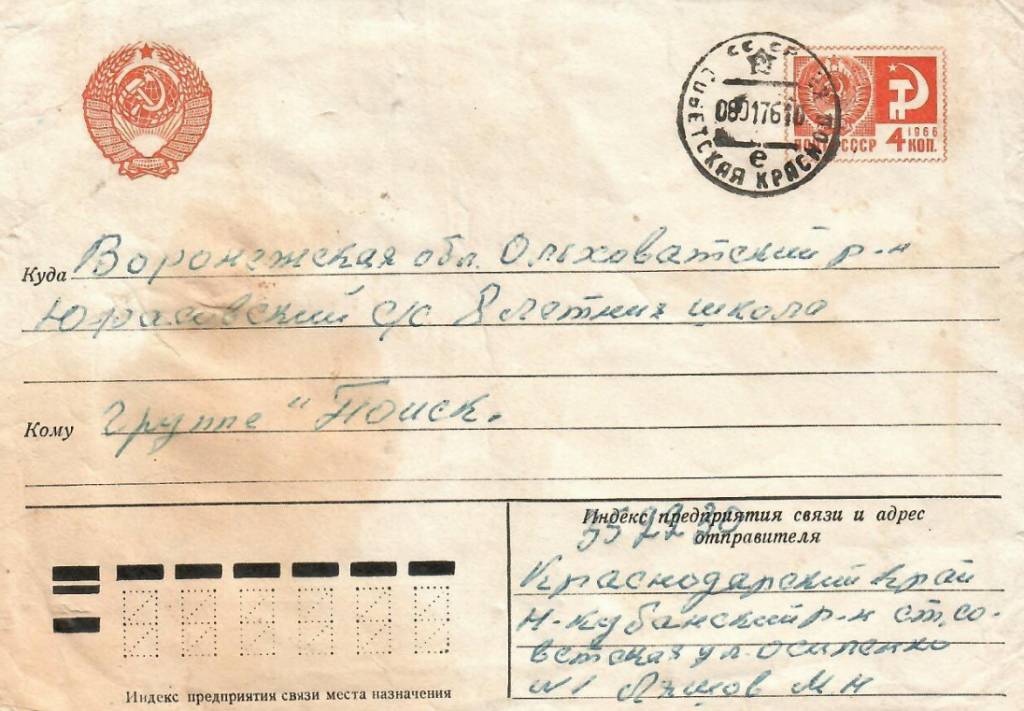 СССР
СОВЕТСКАЯ КРАСНОД
080176 10
е
1966
ПОЧТА СССР 4 КОП.
Куда Воронежская обл. Ольховатский р-н
Юрасовский с/с 8 летних школа
Кому Группе "Поиск.
Индекс предприятия связи и адрес
отправителя
352230
Краснодарский край
Н-кубанский р-н ст. со-
ветская ул. Осипенко
№1 М Н
Индекс предприятия связи места назначения